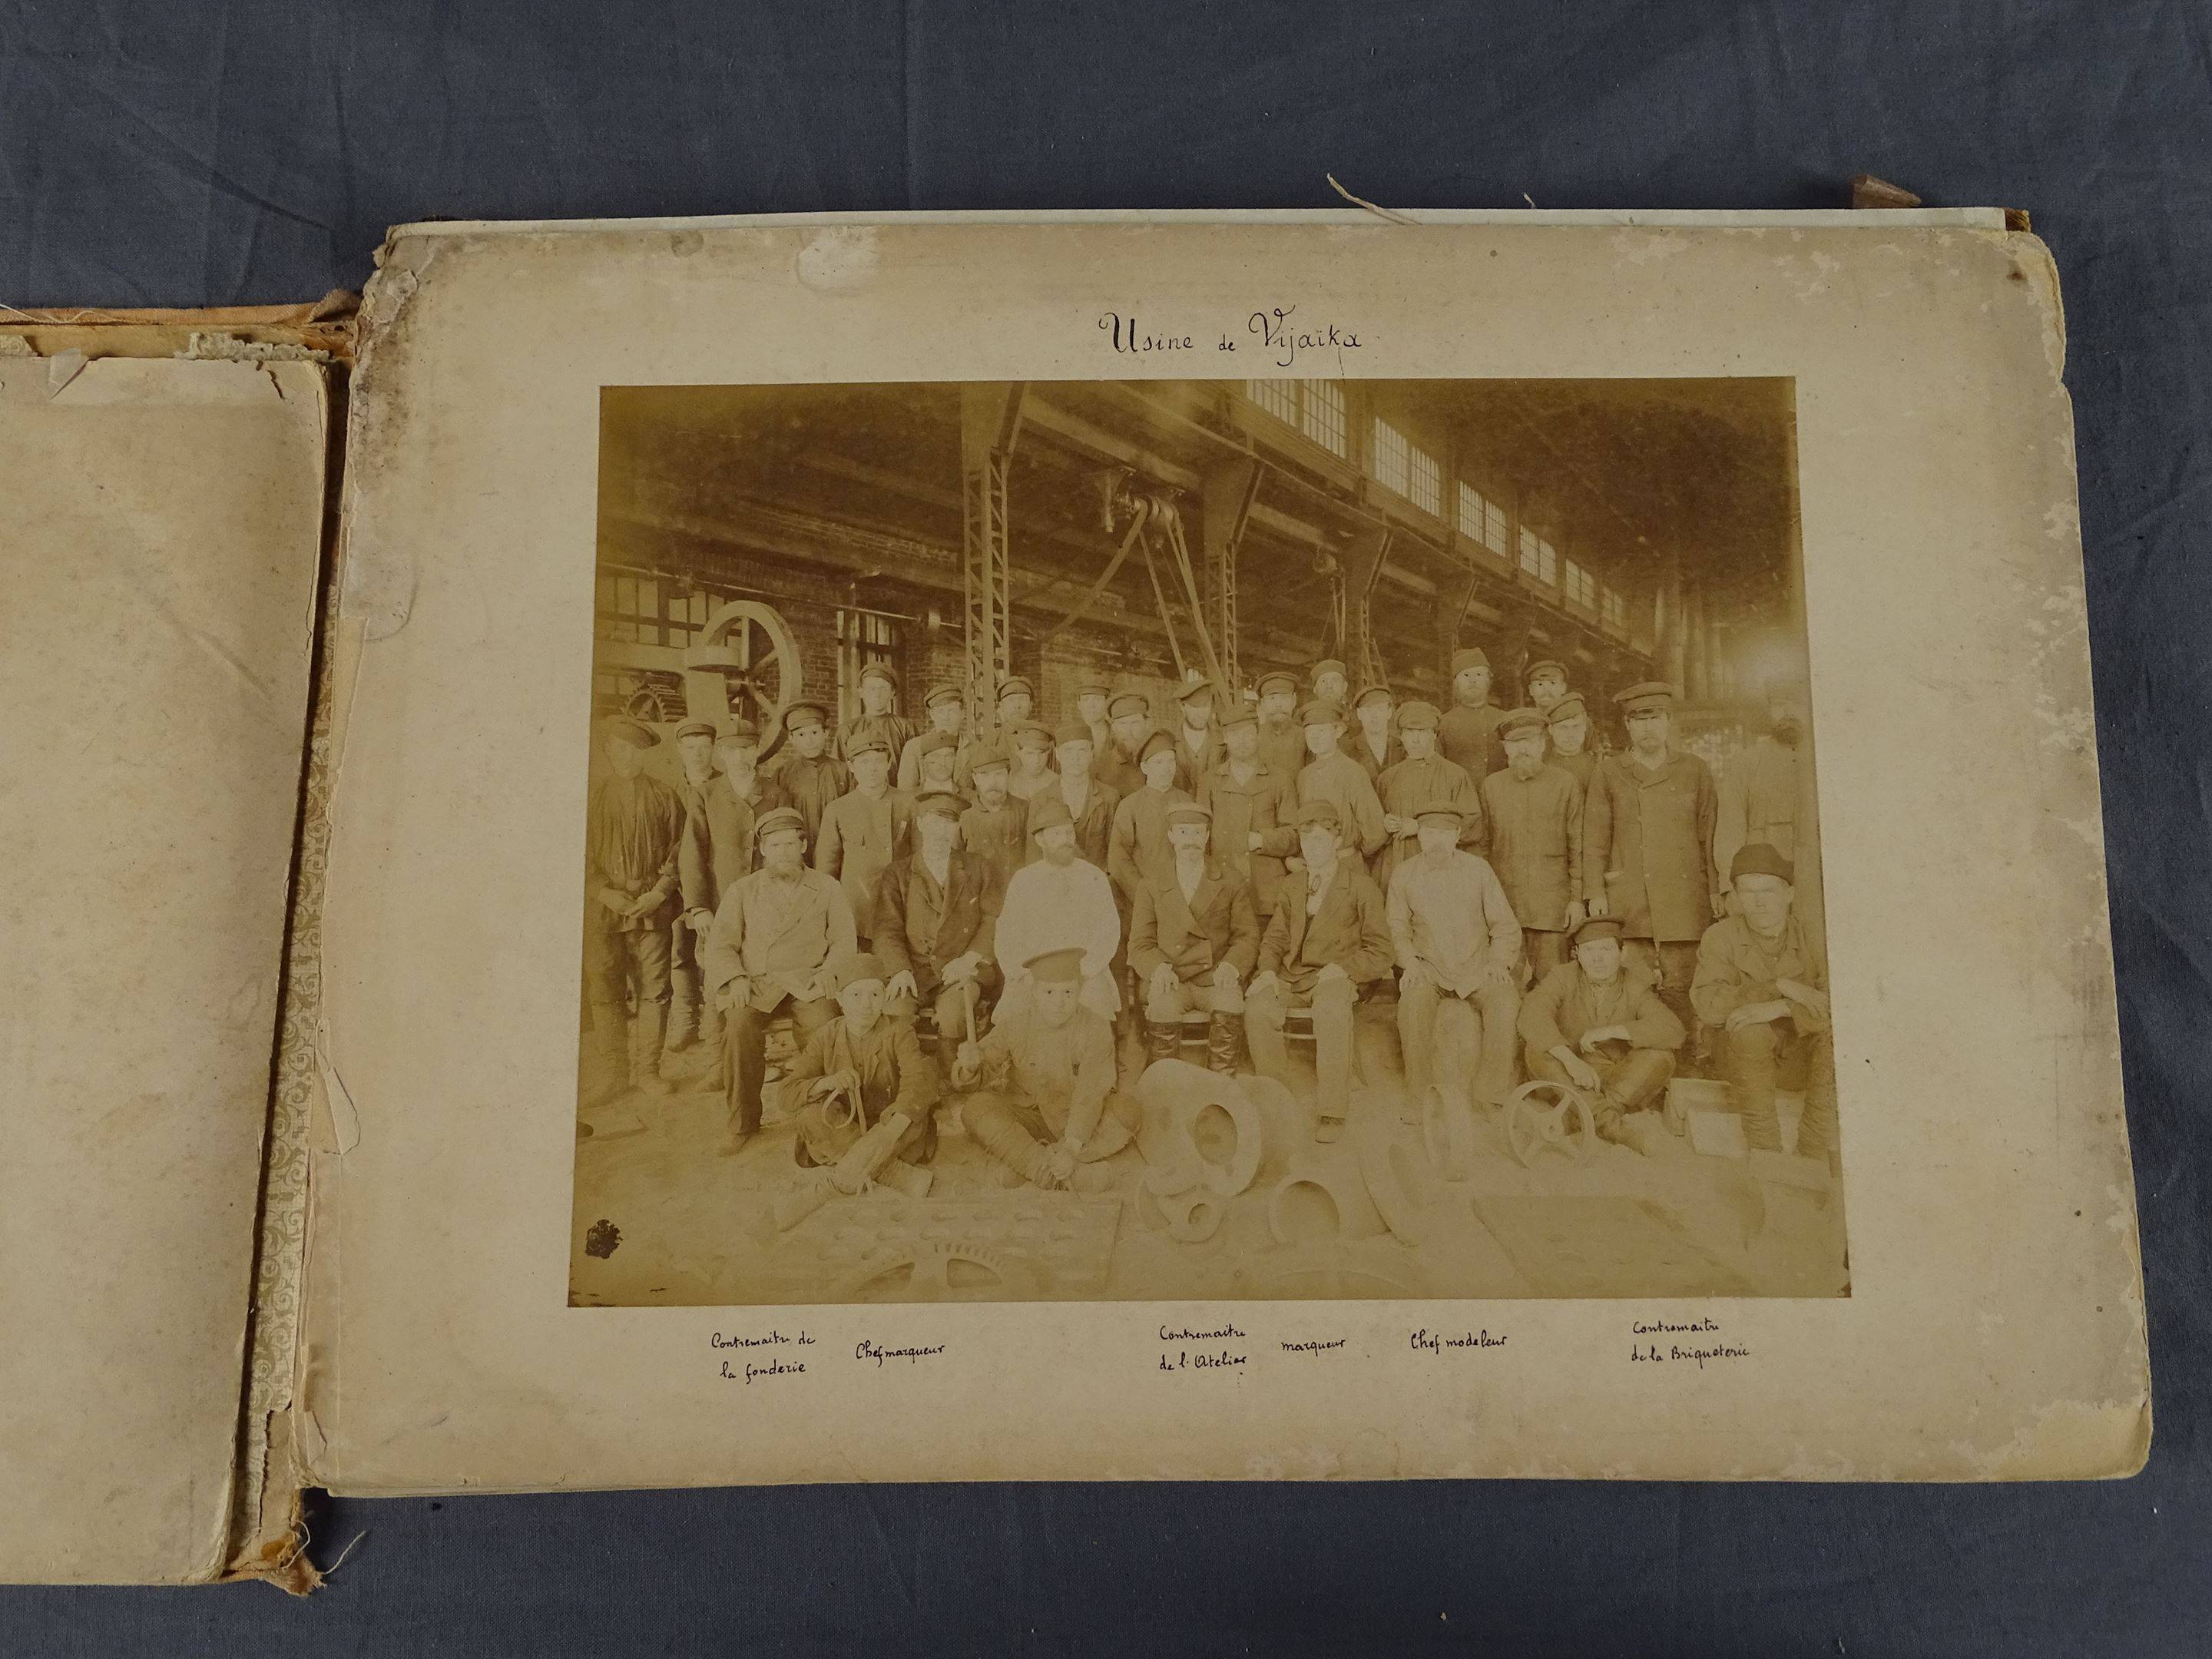 Usine de Vijaïka
Contremaitre de
la fonderie
Chef marqueur
Contremaitre
de l'Atelier
marqueur
Chef modeleur
Contremaitre
de la Briqueterie